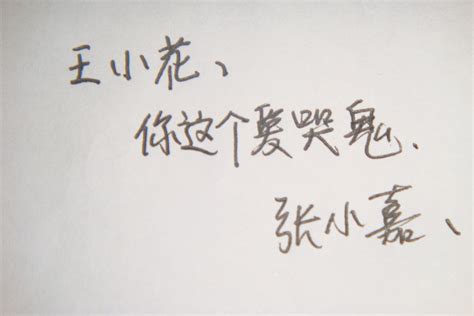 王小花、
你这个爱哭鬼、
张小嘉、